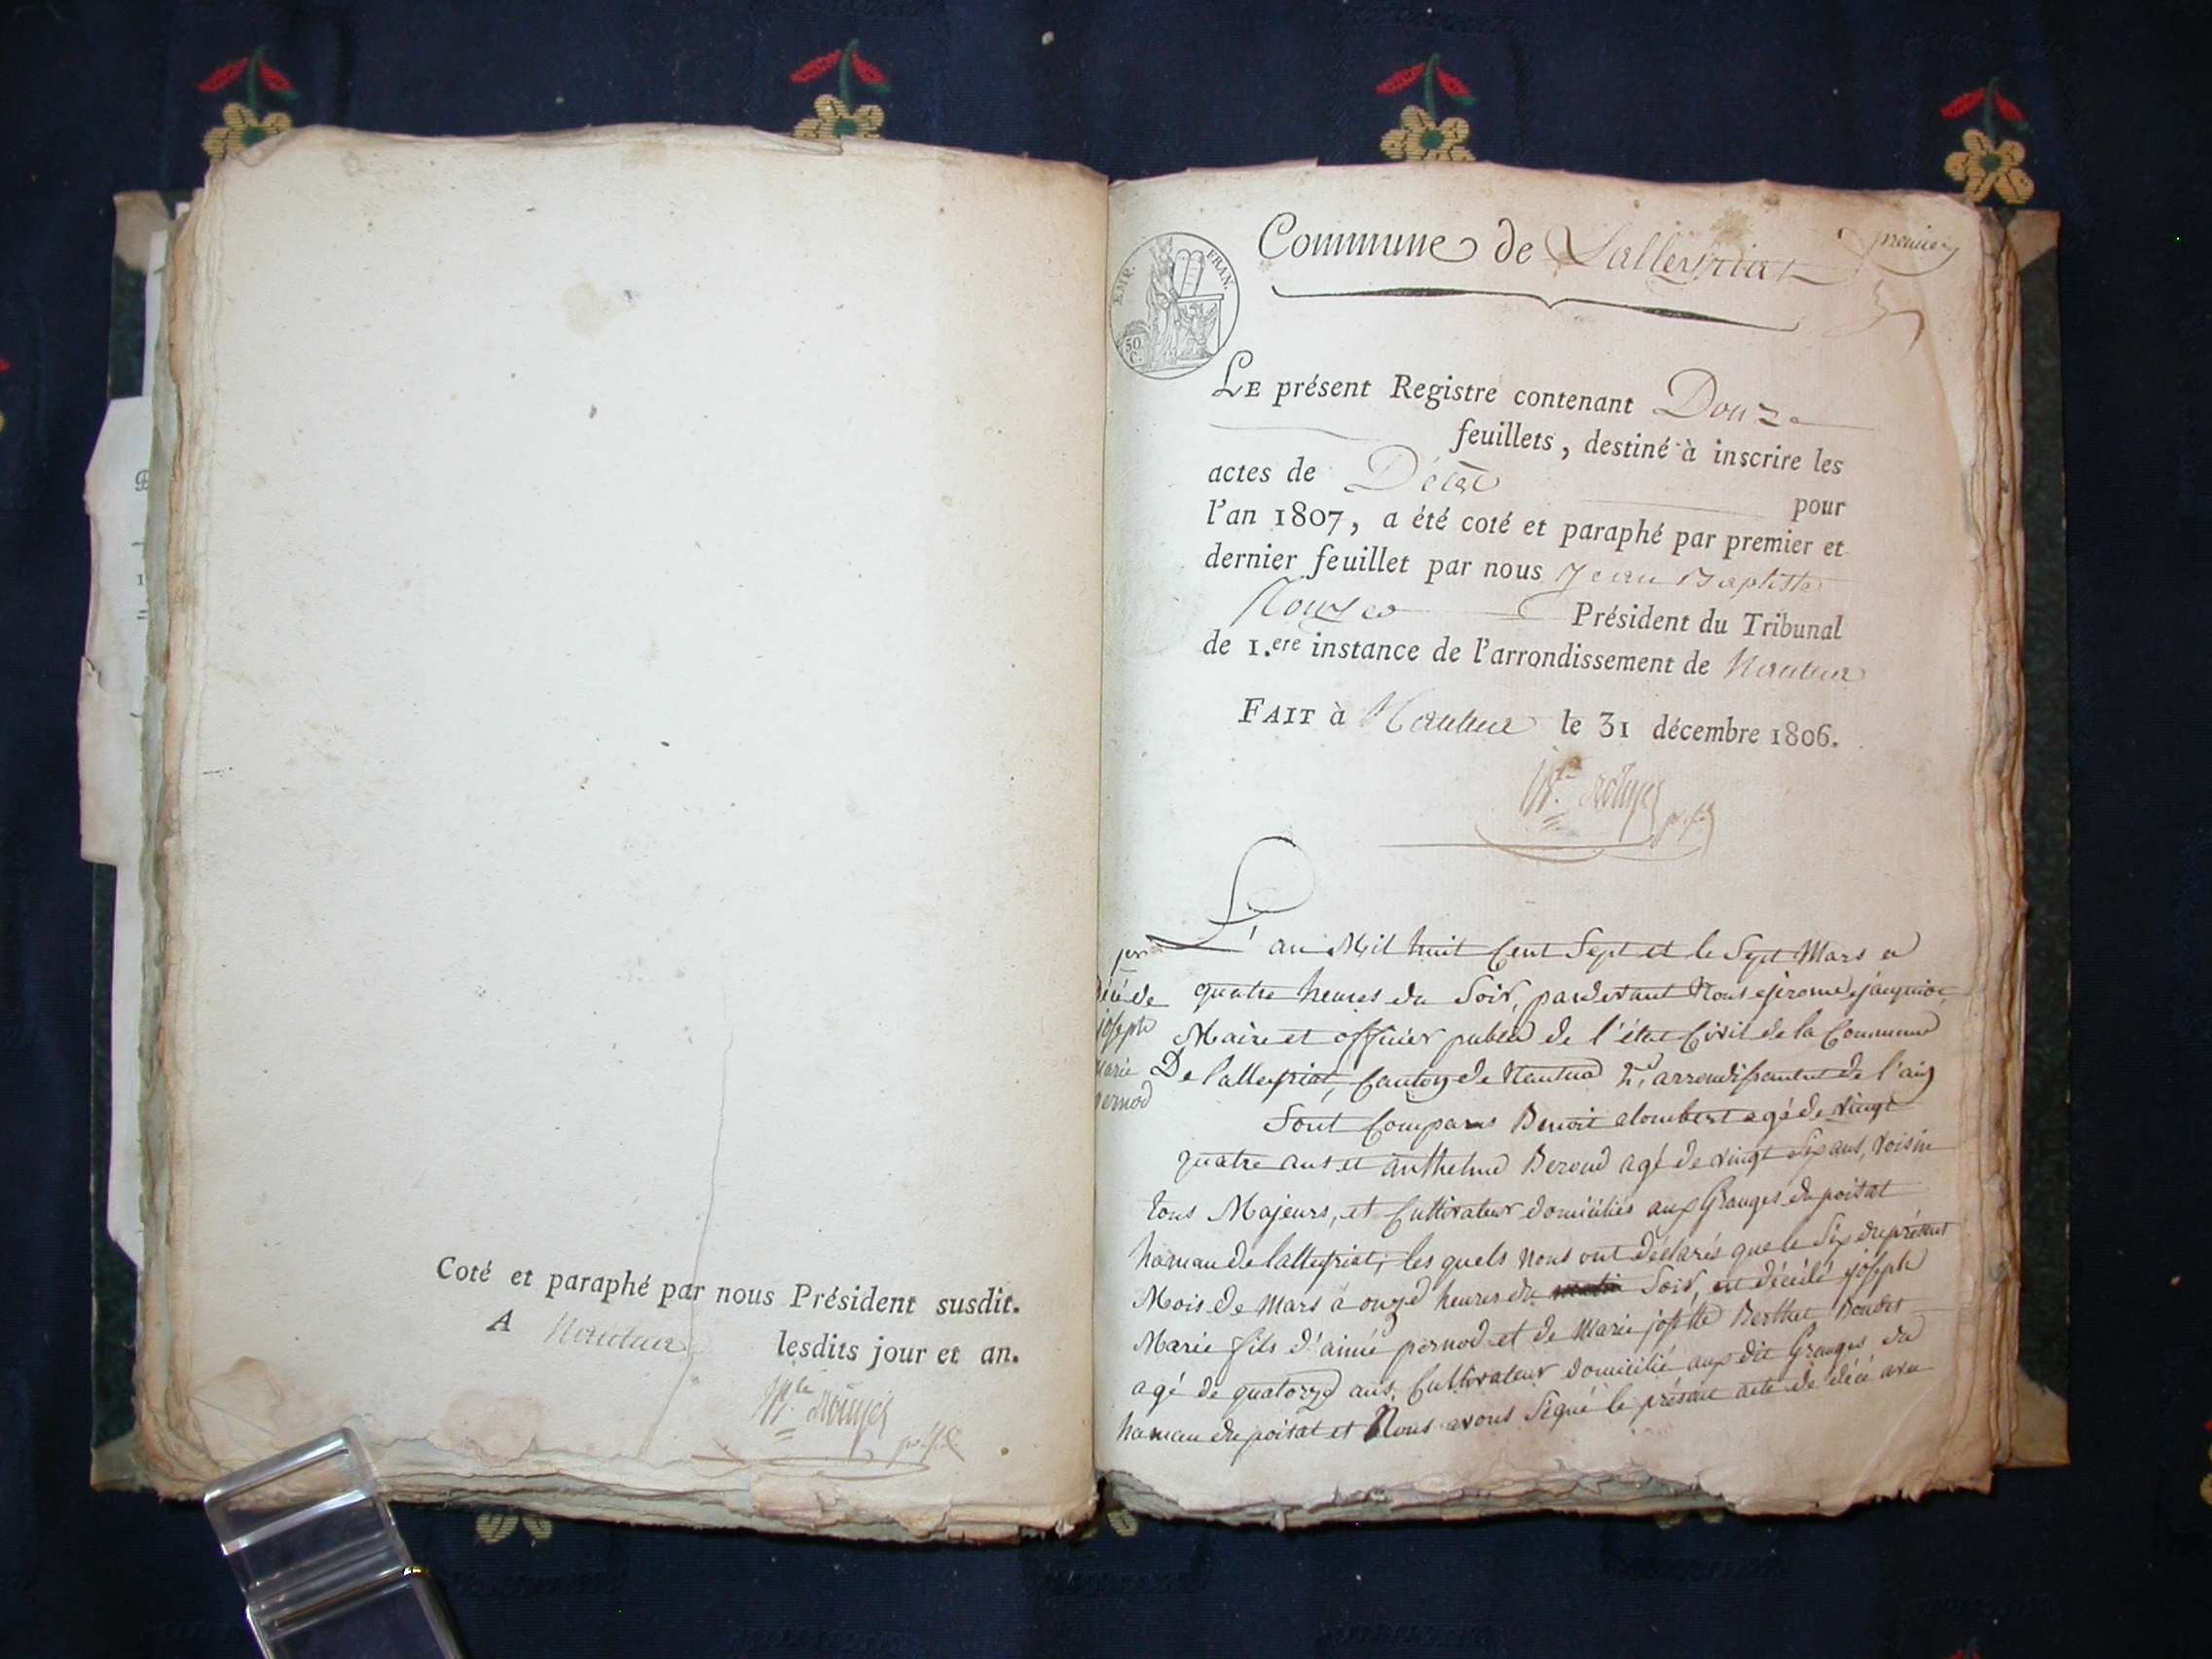 Coté et paraphé par nous Président susdit.
A Nantua lesdits jour et an.
Bte Rouyer
premier
Commune de Lalleyriat
EMP. FRAN.
50 C.
LE présent Registre contenant Douze
feuillets, destiné à inscrire les
actes de Décès pour
l'an 1807, a été coté et paraphé par premier et
dernier feuillet par nous Jean Baptiste
Rouyer Président du Tribunal
de 1.ere instance de l'arrondissement de Nantua
FAIT à Nantua le 31 décembre 1806.
Bte Rouyer
1er
décé de
joseph
marie
pernod
L'an Mil huit Cent Sept et le Sept Mars a
quatre heures du Soir, pardevant Nous jérome
Maire et officier public de l'état Civil de la Commune
De lalleyriat, Canton de Nantua 2d arrondissement de l'ain
Sont Comparus Benoit alombert agé de vingt
quatre ans et anthelme Beroud agé de vingt Six ans, voisin
tous Majeurs, et Cultivateur domiciliés aux Granges du poisat
hameau de lalleyriat; les quels nous ont déclarés que le Six du présent
Mois de Mars a onze heures du Soir, est décédé joseph
Marie fils d'aimé pernod et de Marie josette Berthet Bondet
agé de quatorze ans, Cultivateur domicilié aux dit Granges du
hameau du poisat et Nous avons Signé le présent acte de décé avec